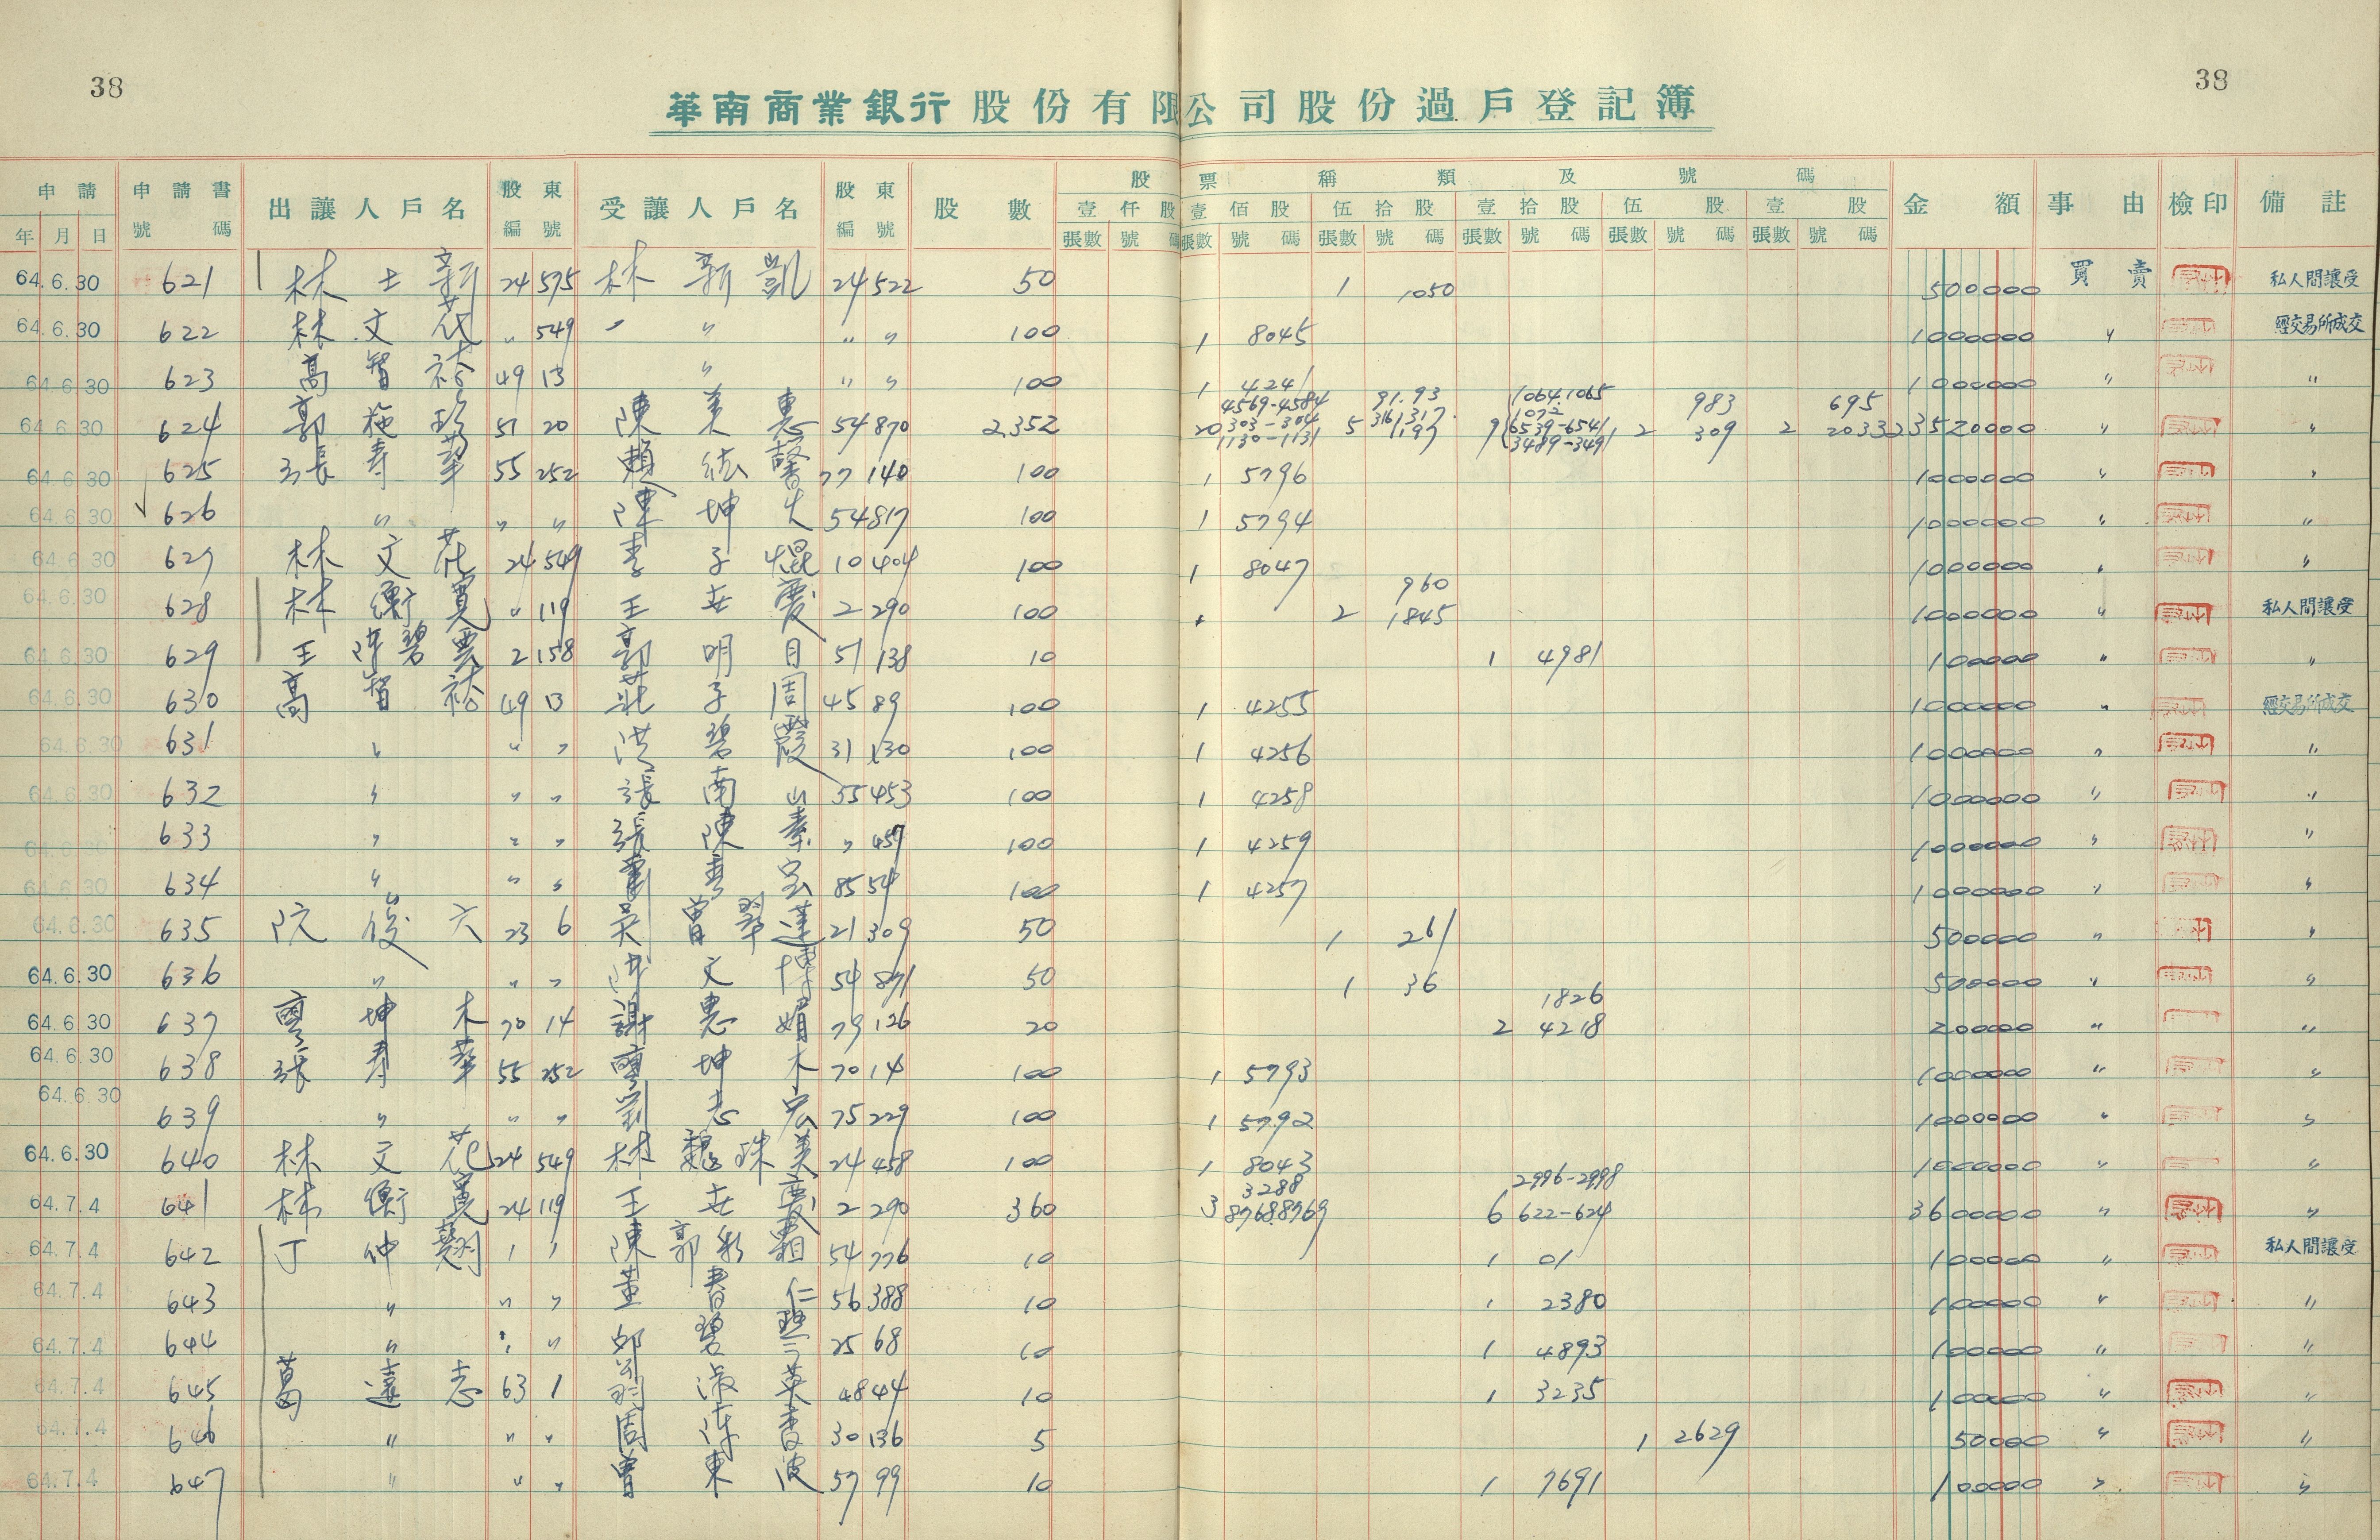 38
38
華南商業銀行股份有限公司股份過戶登記簿
申請 申請書 出讓人戶名 股東 受讓人戶名 股東 股數 股票種類及號碼 金額 事由 檢印 備註
年 月 日 號碼 編號 編號 壹仟股 壹佰股 伍拾股 壹拾股 伍股 壹股
張數 號碼 張數 號碼 張數 號碼 張數 號碼 張數 號碼 張數 號碼
64.6.30 621 林士新 24 575 林新凱 24 522 50 1 1050 500000 買賣 私人間讓受
64.6.30 622 林文花 〃 549 〃 〃 〃 〃 100 1 8045 1000000 〃 經交易所成交
64.6.30 623 高智裕 49 13 〃 〃 〃 100 1 4241 1000000 〃 〃
4569-4584 91.93 1064.1065 983 695
64.6.30 624 郭施 51 20 陳美惠 54 870 2,352 20 303-304 5 316/317 9 1072 6539-6541 2 309 2 2033 23520000 〃 〃
1130-1131 1197 3489-3491
64.6.30 625 張寿華 55 252 賴 馨 77 140 100 1 5796 1000000 〃 〃
64.6.30 626 〃 〃 〃 陳坤火 54 817 100 1 5794 1000000 〃 〃
64.6.30 627 林文花 24 549 李子焜 10 404 100 1 8047 1000000 〃 〃
960
64.6.30 628 林衡寬 〃 119 王世慶 2 290 100 2 1845 1000000 〃 私人間讓受
64.6.30 629 王陳碧雲 2 158 郭明月 51 138 10 1 4981 100000 〃 〃
64.6.30 630 高智裕 49 13 莊子周 45 89 100 1 4255 1000000 〃 經交易所成交
64.6.30 631 〃 〃 〃 洪碧霞 31 130 100 1 4256 1000000 〃 〃
64.6.30 632 〃 〃 〃 張南山 55 453 100 1 4258 1000000 〃 〃
64.6.30 633 〃 〃 〃 張陳秦 〃 457 100 1 4259 1000000 〃 〃
64.6.30 634 〃 〃 〃 85 54 100 1 4257 1000000 〃 〃
64.6.30 635 阮俊六 23 6 吳曾翠蓮 21 309 50 1 261 500000 〃 〃
64.6.30 636 〃 〃 〃 陳文博 54 871 50 1 36 500000 〃 〃
1826
64.6.30 637 廖坤木 70 14 謝惠娟 79 126 20 2 4218 200000 〃 〃
64.6.30 638 張寿華 55 252 廖坤木 70 14 100 1 5793 1000000 〃 〃
64.6.30 639 〃 〃 〃 劉志宏 75 229 100 1 5792 1000000 〃 〃
64.6.30 640 林文花 24 549 林魏珠美 24 458 100 1 8043 1000000 〃 〃
3288 2996-2998
64.7.4 641 林衡寬 24 119 王世慶 2 290 360 3 8768.8769 6 622-624 3600000 〃 〃
64.7.4 642 丁仲翹 1 1 陳郭彩霜 54 776 10 1 01 100000 〃 私人間讓受
64.7.4 643 〃 〃 〃 董春仁 56 388 10 1 2380 100000 〃 〃
64.7.4 644 〃 〃 〃 邱碧 25 68 10 1 4893 100000 〃 〃
64.7.4 645 葛遠志 63 1 翁淑英 48 44 10 1 3235 100000 〃 〃
64.7.4 646 〃 〃 〃 周陳杏 30 136 5 1 2629 50000 〃 〃
64.7.4 647 〃 〃 〃 曾東波 57 99 10 1 7691 100000 〃 〃